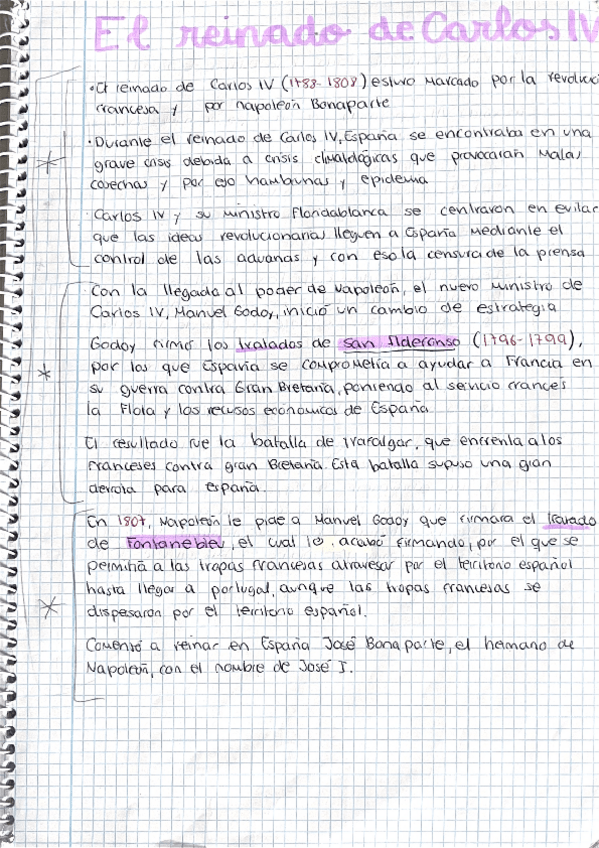 El reinado de Carlos IV
·El reinado de Carlos IV (1788-1808) estuvo marcado por la revoluci
francesa y por napoleón Bonaparte
·Durante el reinado de Carlos IV, España se encontraba en una
grave crisis debida a crisis climatológicas que provocaran malas
cosechas y por eso hambrunas y epidemia
·Carlos IV y su ministro flondablanca se centraron en evitar
que las ideas revolucionarias lleguen a España mediante el
control de las aduanas y con eso la censura de la prensa
Con la llegada al poder de Napoleón, el nuevo ministro de
Carlos IV, Manuel Godoy, inició un cambio de estrategia
Godoy firmó los tratados de san Ildefonso (1796-1799),
por los que España se comprometía a ayudar a Francia en
su guerra contra Gran Bretaña, poniendo al servicio francés
la flota y los recusos económicos de España.
El resultado fue la batalla de Trafalgar, que enfrenta a los
franceses contra gran Bretaña. Esta batalla supuso una gran
derrota para españa.
En 1807, Napoleón le pide a Manuel Godoy que firmara el Tratado
de Fontanebleu, el cual lo acabó firmando, por el que se
permitía a las tropas francesas atravesar por el territorio español
hasta llegar a portugal, aunque las tropas francesas se
dispesaron por el territorio español.
Comenzó a reinar en España José Bonaparte, el hemano de
Napoleón, con el nombre de José I.